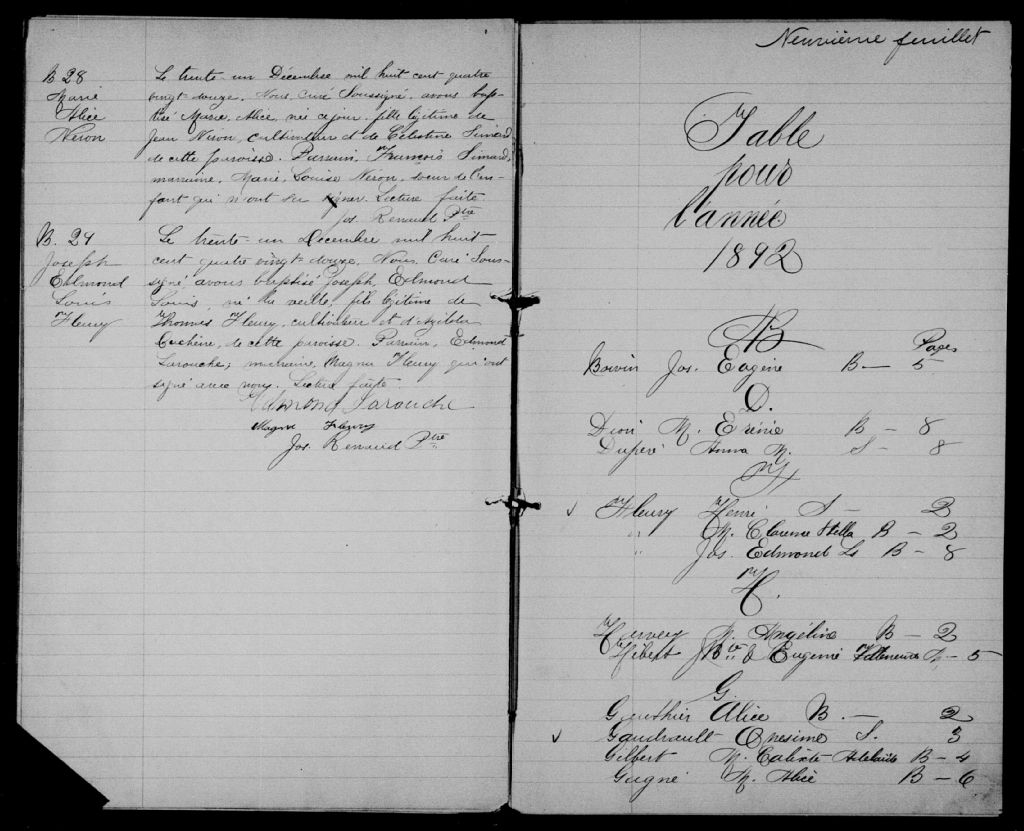 B 28
Marie
Alice
Néron
Le trente-un Décembre mil huit cent quatre
vingt-douze, Nous, curé Soussigné, avons bap-
tisé Marie, Alice, née ce jour, fille légitime de
Jean Néron, cultivateur et de Célestine Simard
de cette paroisse. Parrain, François Simard,
marraine, Marie Louise Néron, soeur de l'en-
fant qui n'ont su signer. Lecture faite.
Jos. Renaud Ptre
B. 29
Joseph
Edmond
Louis
Fleury
Le trente-un Décembre mil huit
cent quatre vingt-douze, Nous, Curé Sous-
signé, avons baptisé Joseph, Edmond
Louis, né la veille, fils légitime de
Thomas Fleury, cultivateur et
de cette paroisse. Parrain, Edmond
Larouche; marraine, Magna Fleury qui ont
signé avec nous. Lecture faite.
Edmond Larouche
Magna Fleury
Jos. Renaud Ptre
Neuvième feuillet
Table
pour
l'année
1892
B
Pages
Boivin Jos. Eugène B — 5
D.
Dion M. Erénie B — 8
Duperé Anna M. S — 8
F
√ Fleury Henri S — 2
" M. Clarence Stella B — 2
" Jos. Edmond Ls B — 8
H.
Harvey M. Angéline B — 2
Hébert J.Bte & Eugenie Villeneuve M — 5
G.
Gauthier Alice B. — 2
√ Gaudrault Onesime S. 3
Gilbert M. Calixte Adelaide B — 4
Gagné M. Alice B — 6